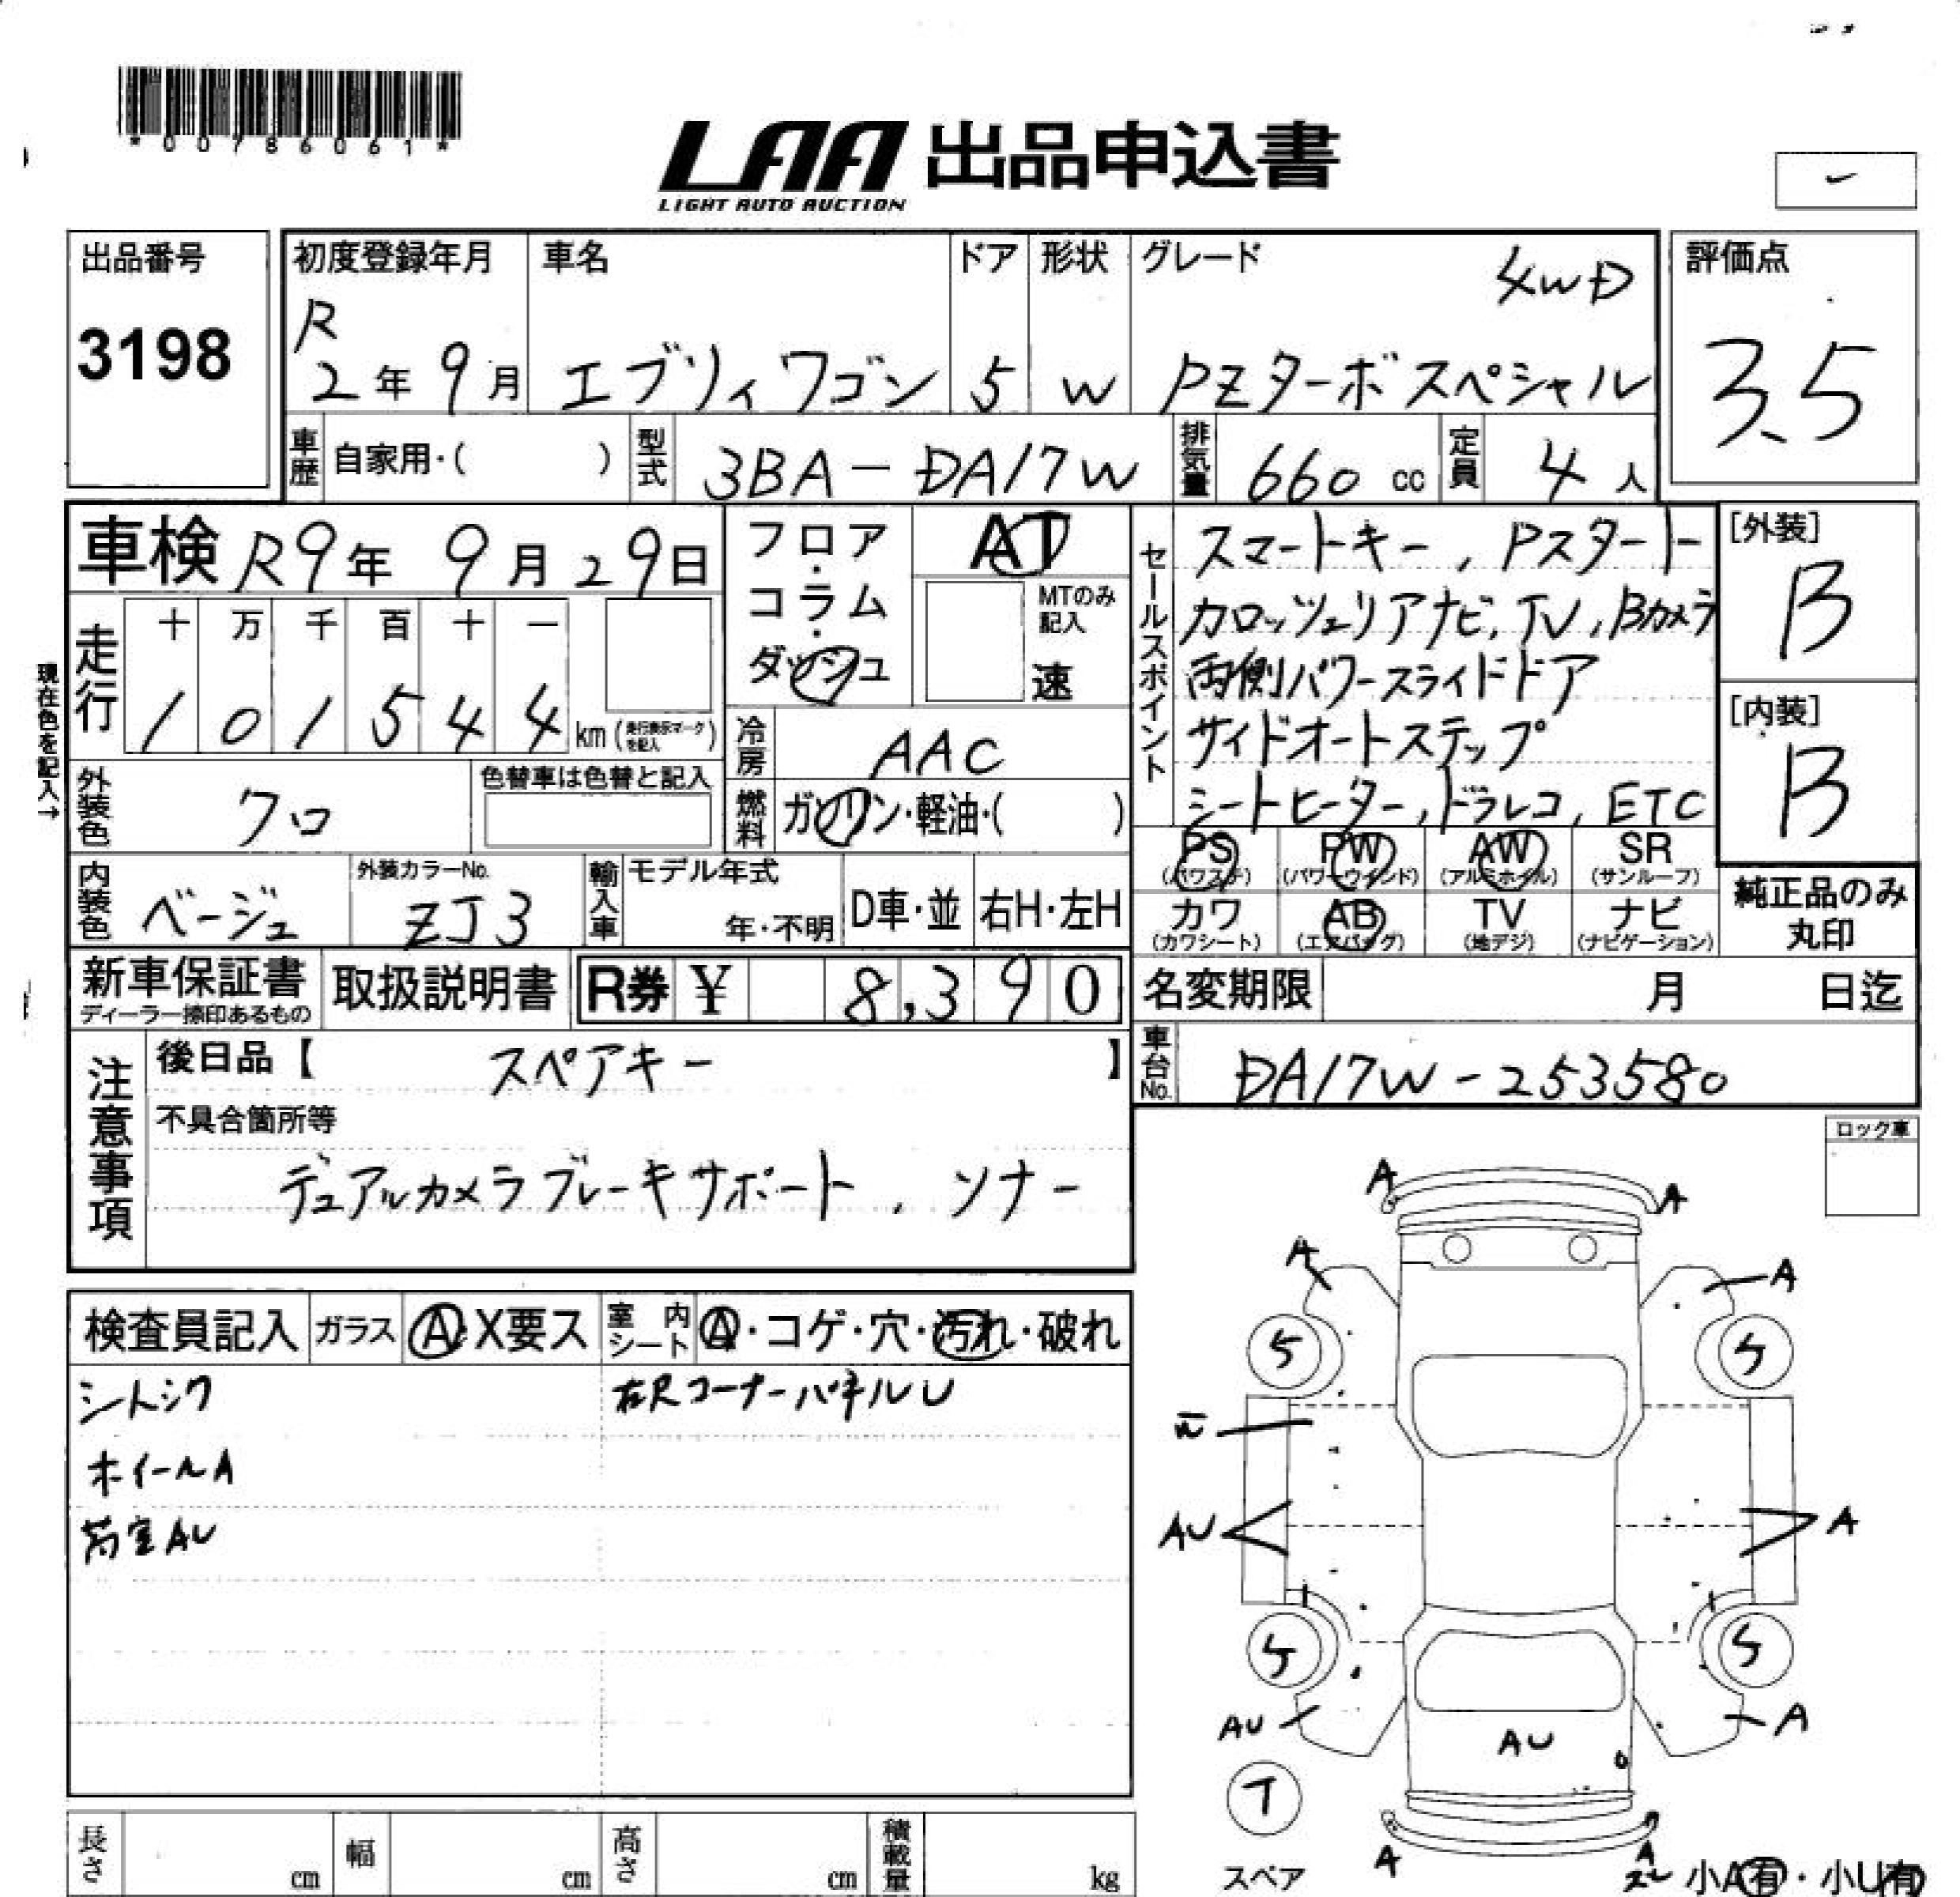 *00786061*
LAA 出品申込書
LIGHT AUTO AUCTION
出品番号
3198
初度登録年月
R
2年 9月
車名
エブリィワゴン
ドア
5
形状
W
グレード
4WD
PZターボスペシャル
評価点
3.5
車歴 自家用・( )
型式 3BA-DA17W
排気量 660 cc
定員 4 人
車検 R9年 9月 29日
フロア・コラム・ダッシュ
AT
MTのみ記入
速
セールスポイント
スマートキー, Pスタート
カロッツェリアナビ, TV, Bカメラ
両側パワースライドドア
サイドオートステップ
シートヒーター, ドラレコ, ETC
[外装]
B
[内装]
B
現在色を記入→
走行
十 万 千 百 十 一
1 0 1 5 4 4 km (走行表示マークを記入)
冷房 AAC
外装色 クロ
色替車は色替と記入
燃料 ガソリン・軽油・( )
PS (パワステ)
PW (パワーウインド)
AW (アルミホイル)
SR (サンルーフ)
カワ (カワシート)
AB (エアバッグ)
TV (地デジ)
ナビ (ナビゲーション)
純正品のみ
丸印
内装色 ベージュ
外装カラーNo.
ZJ3
輸入車
モデル年式
年・不明
D車・並
右H・左H
新車保証書
ディーラー捺印あるもの
取扱説明書
R券 ¥ 8,390
名変期限 月 日迄
車台No. DA17W-253580
注意事項
後日品【 スペアキー 】
不具合箇所等
デュアルカメラブレーキサポート, ソナー
ロック車
検査員記入
ガラス A・X要ス
室内シート A・コゲ・穴・汚れ・破れ
シートシワ
ホイールA
荷室AU
右Rコーナーパネル U
A
A
A
A
5
5
AU
A
5
5
AU
A
AU
T
スペア
A
A
小A有・小U有
長さ cm
幅 cm
高さ cm
積載量 kg